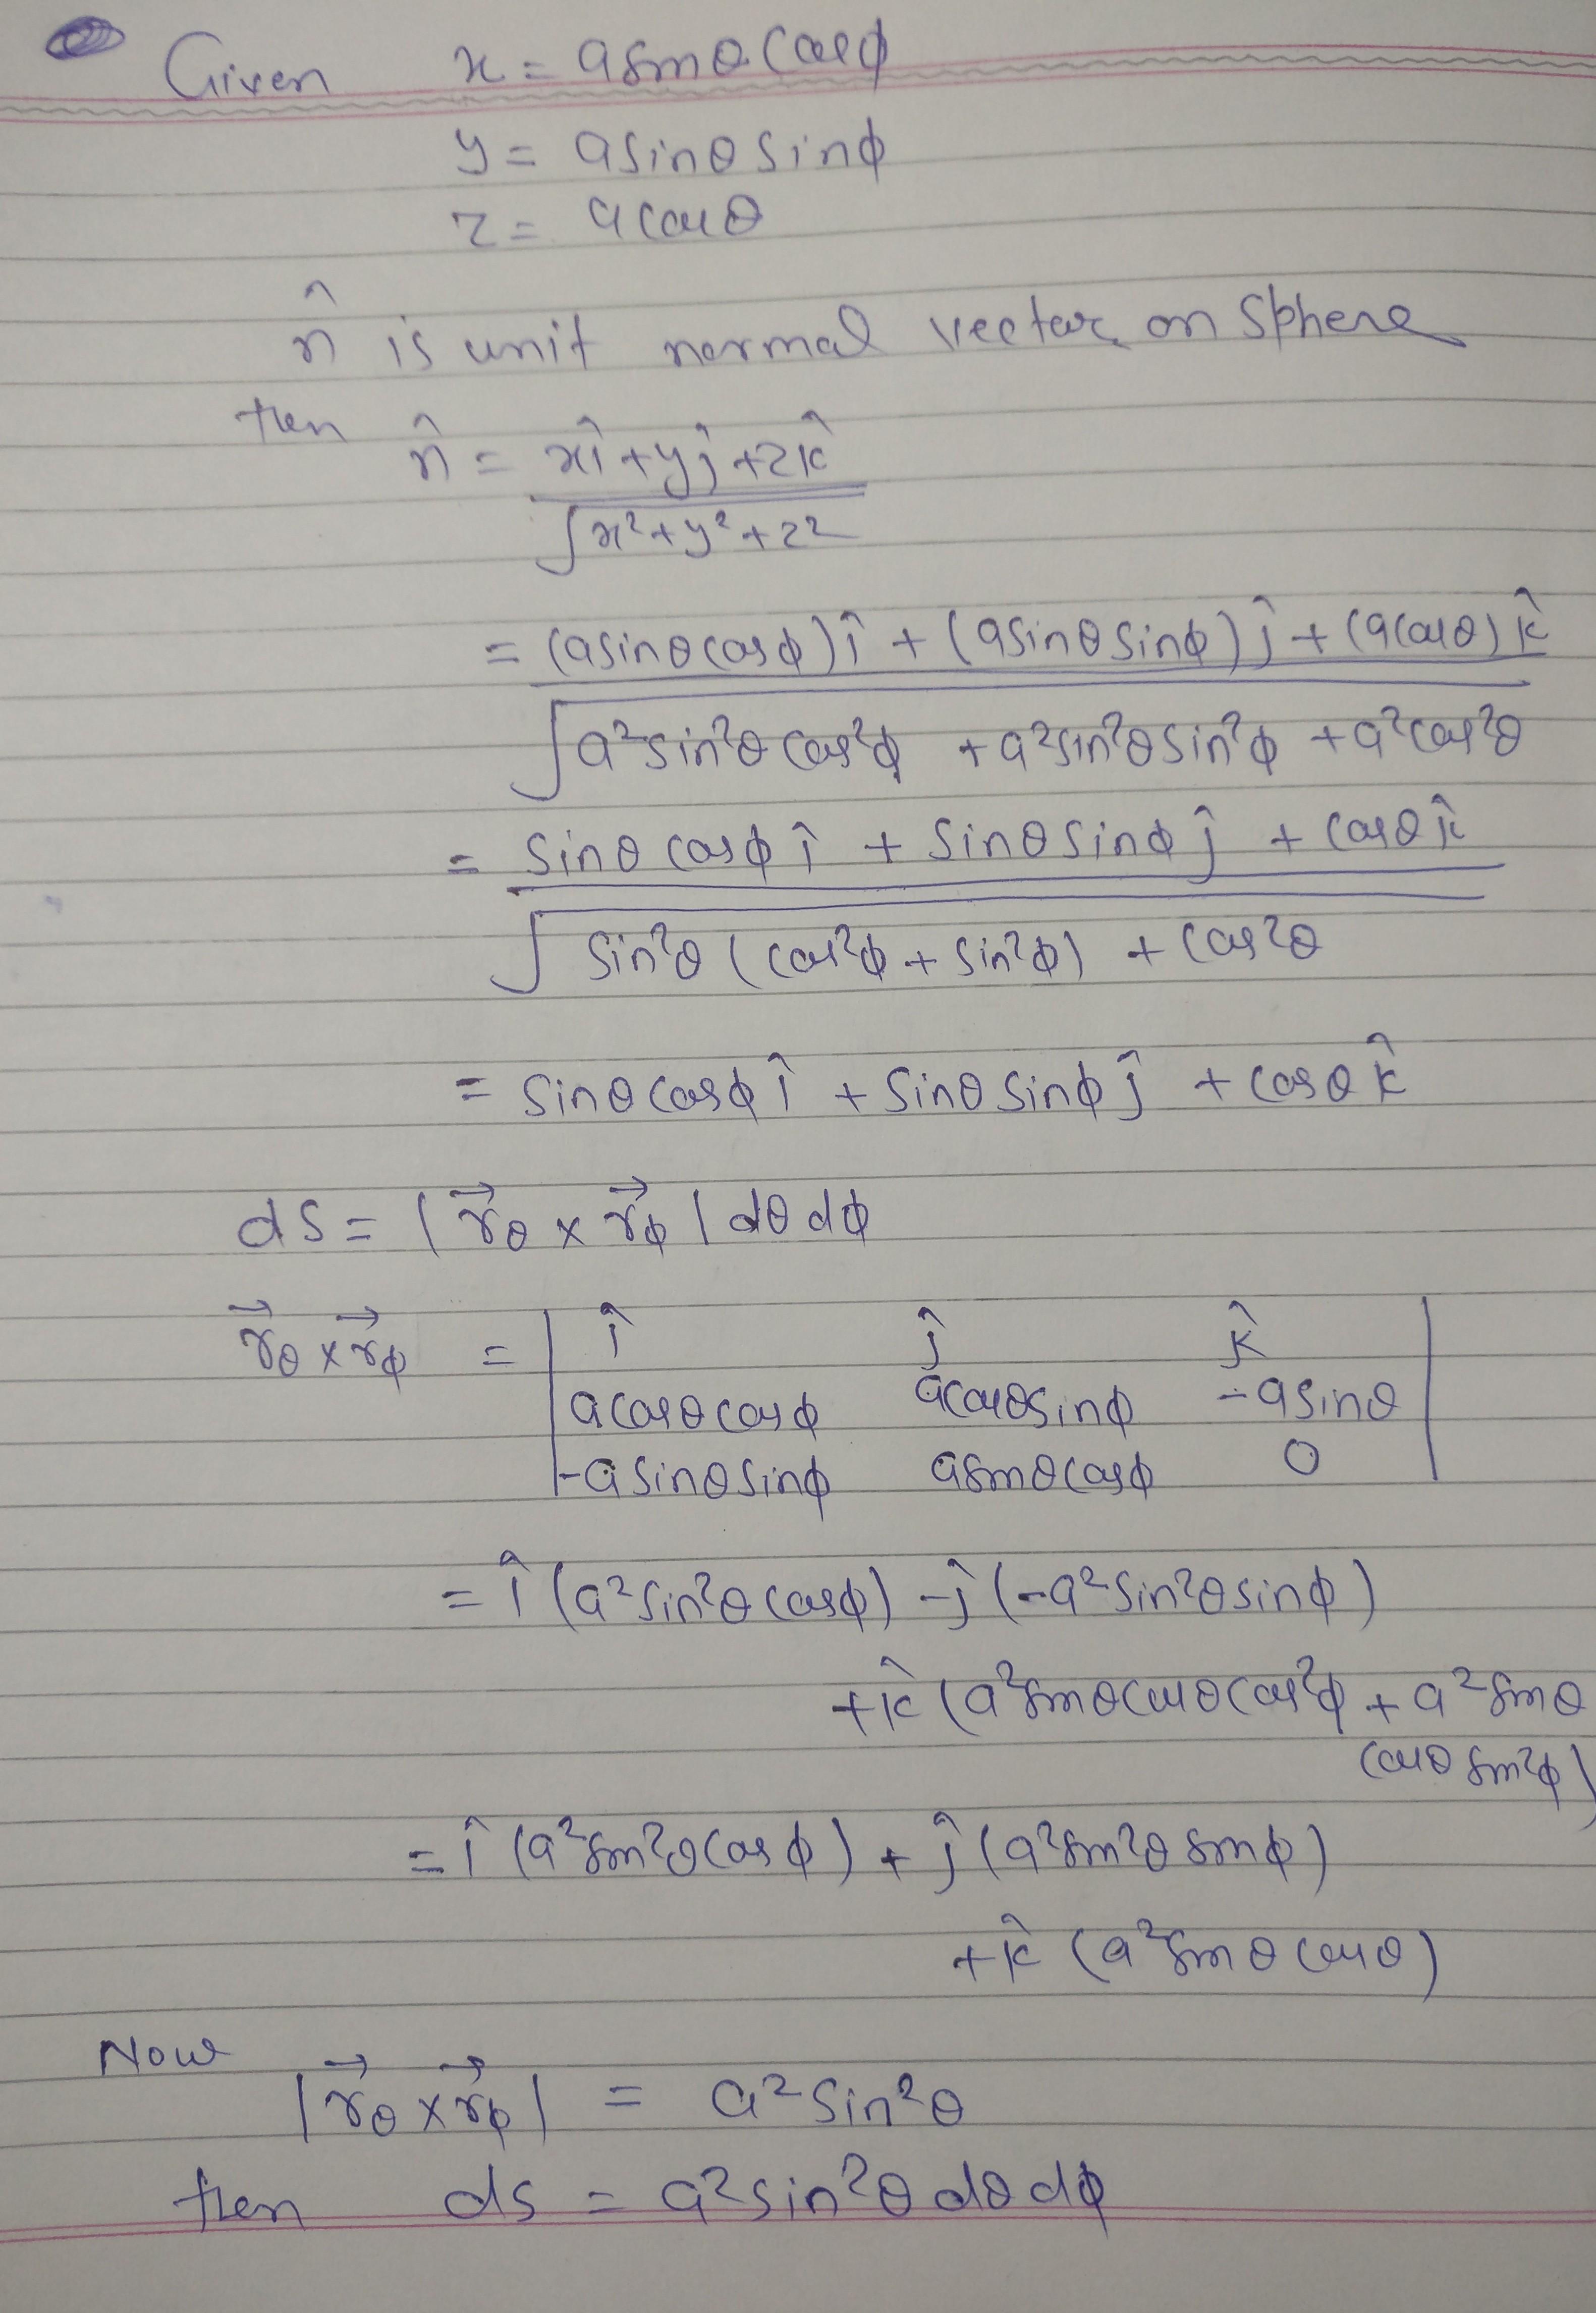 Given x = a sinθ cosϕ
y = a sinθ sinϕ
z = a cosθ
n̂ is unit normal vector on sphere
then n̂ = xî + yĵ + zk̂
√x² + y² + z²
= (a sinθ cosϕ) î + (a sinθ sinϕ) ĵ + (a cosθ) k̂
√a² sin²θ cos²ϕ + a² sin²θ sin²ϕ + a² cos²θ
= sinθ cosϕ î + sinθ sinϕ ĵ + cosθ k̂
√sin²θ (cos²ϕ + sin²ϕ) + cos²θ
= sinθ cosϕ î + sinθ sinϕ ĵ + cosθ k̂
ds = | r⃗θ × r⃗ϕ | dθ dϕ
r⃗θ × r⃗ϕ = | î ĵ k̂ |
a cosθ cosϕ a cosθ sinϕ -a sinθ
-a sinθ sinϕ a sinθ cosϕ 0
= î (a² sin²θ cosϕ) - ĵ (-a² sin²θ sinϕ)
+ k̂ (a² sinθ cosθ cos²ϕ + a² sinθ
cosθ sin²ϕ)
= î (a² sin²θ cosϕ) + ĵ (a² sin²θ sinϕ)
+ k̂ (a² sinθ cosθ)
Now
| r⃗θ × r⃗ϕ | = a² sin²θ
then ds = a² sin²θ dθ dϕ